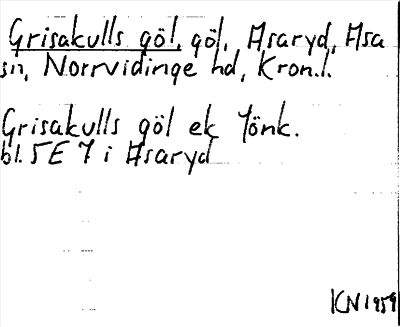 Grisakulls göl, göl, Asaryd, Asa
sn, Norrvidinge hd, Kron.l.
Grisakulls göl ek Jönk.
bl. 5E 7 i Asaryd
KN 1959